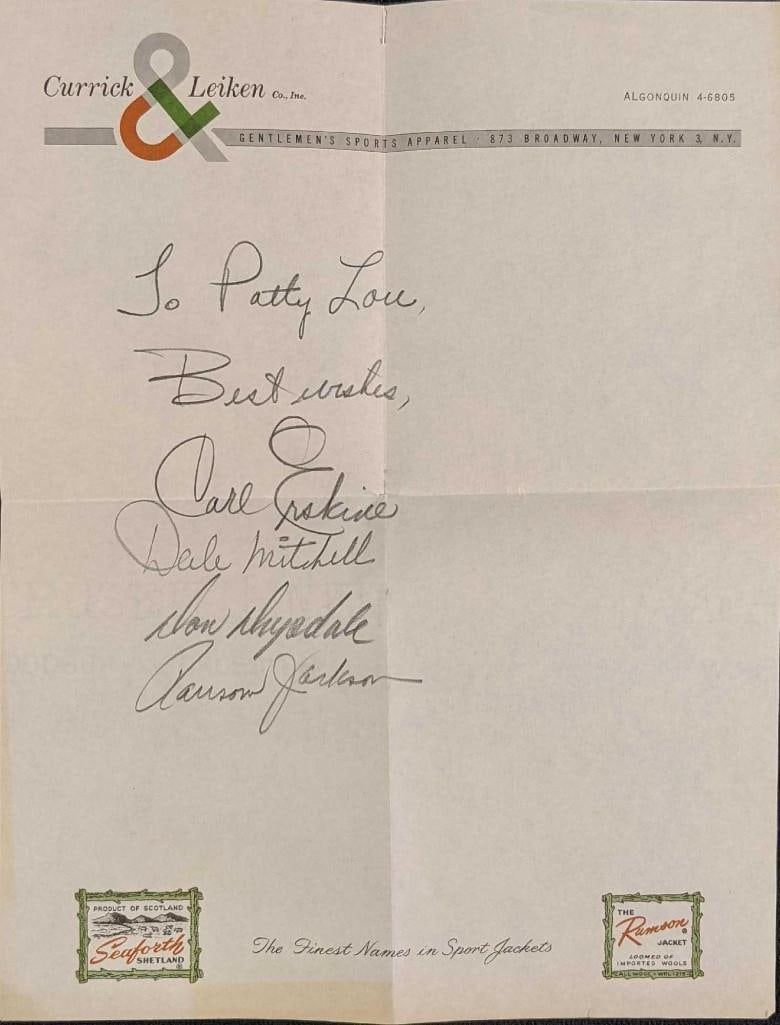 Currick & Leiken Co., Inc.
ALGONQUIN 4-6805
GENTLEMEN'S SPORTS APPAREL · 873 BROADWAY, NEW YORK 3, N.Y.
To Patty Lou,
Best wishes,
Carl Erskine
Dale Mitchell
Don Drysdale
Ransom Jackson
PRODUCT OF SCOTLAND
Seaforth
SHETLAND ®
The Finest Names in Sport Jackets
THE
Rumson ®
JACKET
LOOMED OF
IMPORTED WOOLS